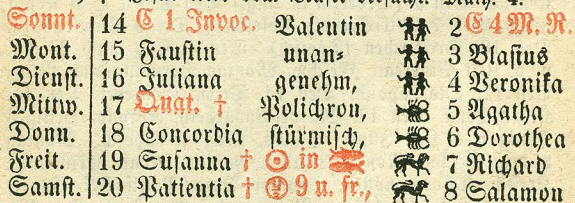 Sonnt. 14 E 1 Invoc. Valentin 2 E 4 M. R.
Mont. 15 Faustin unan- 3 Blasius
Dienst. 16 Juliana genehm, 4 Veronika
Mittw. 17 Quat. † Polichron, 5 Agatha
Donn. 18 Concordia stürmisch, 6 Dorothea
Freit. 19 Susanna † ☉ in ♓ 7 Richard
Samst. 20 Patientia † 9 u. fr., 8 Salamon